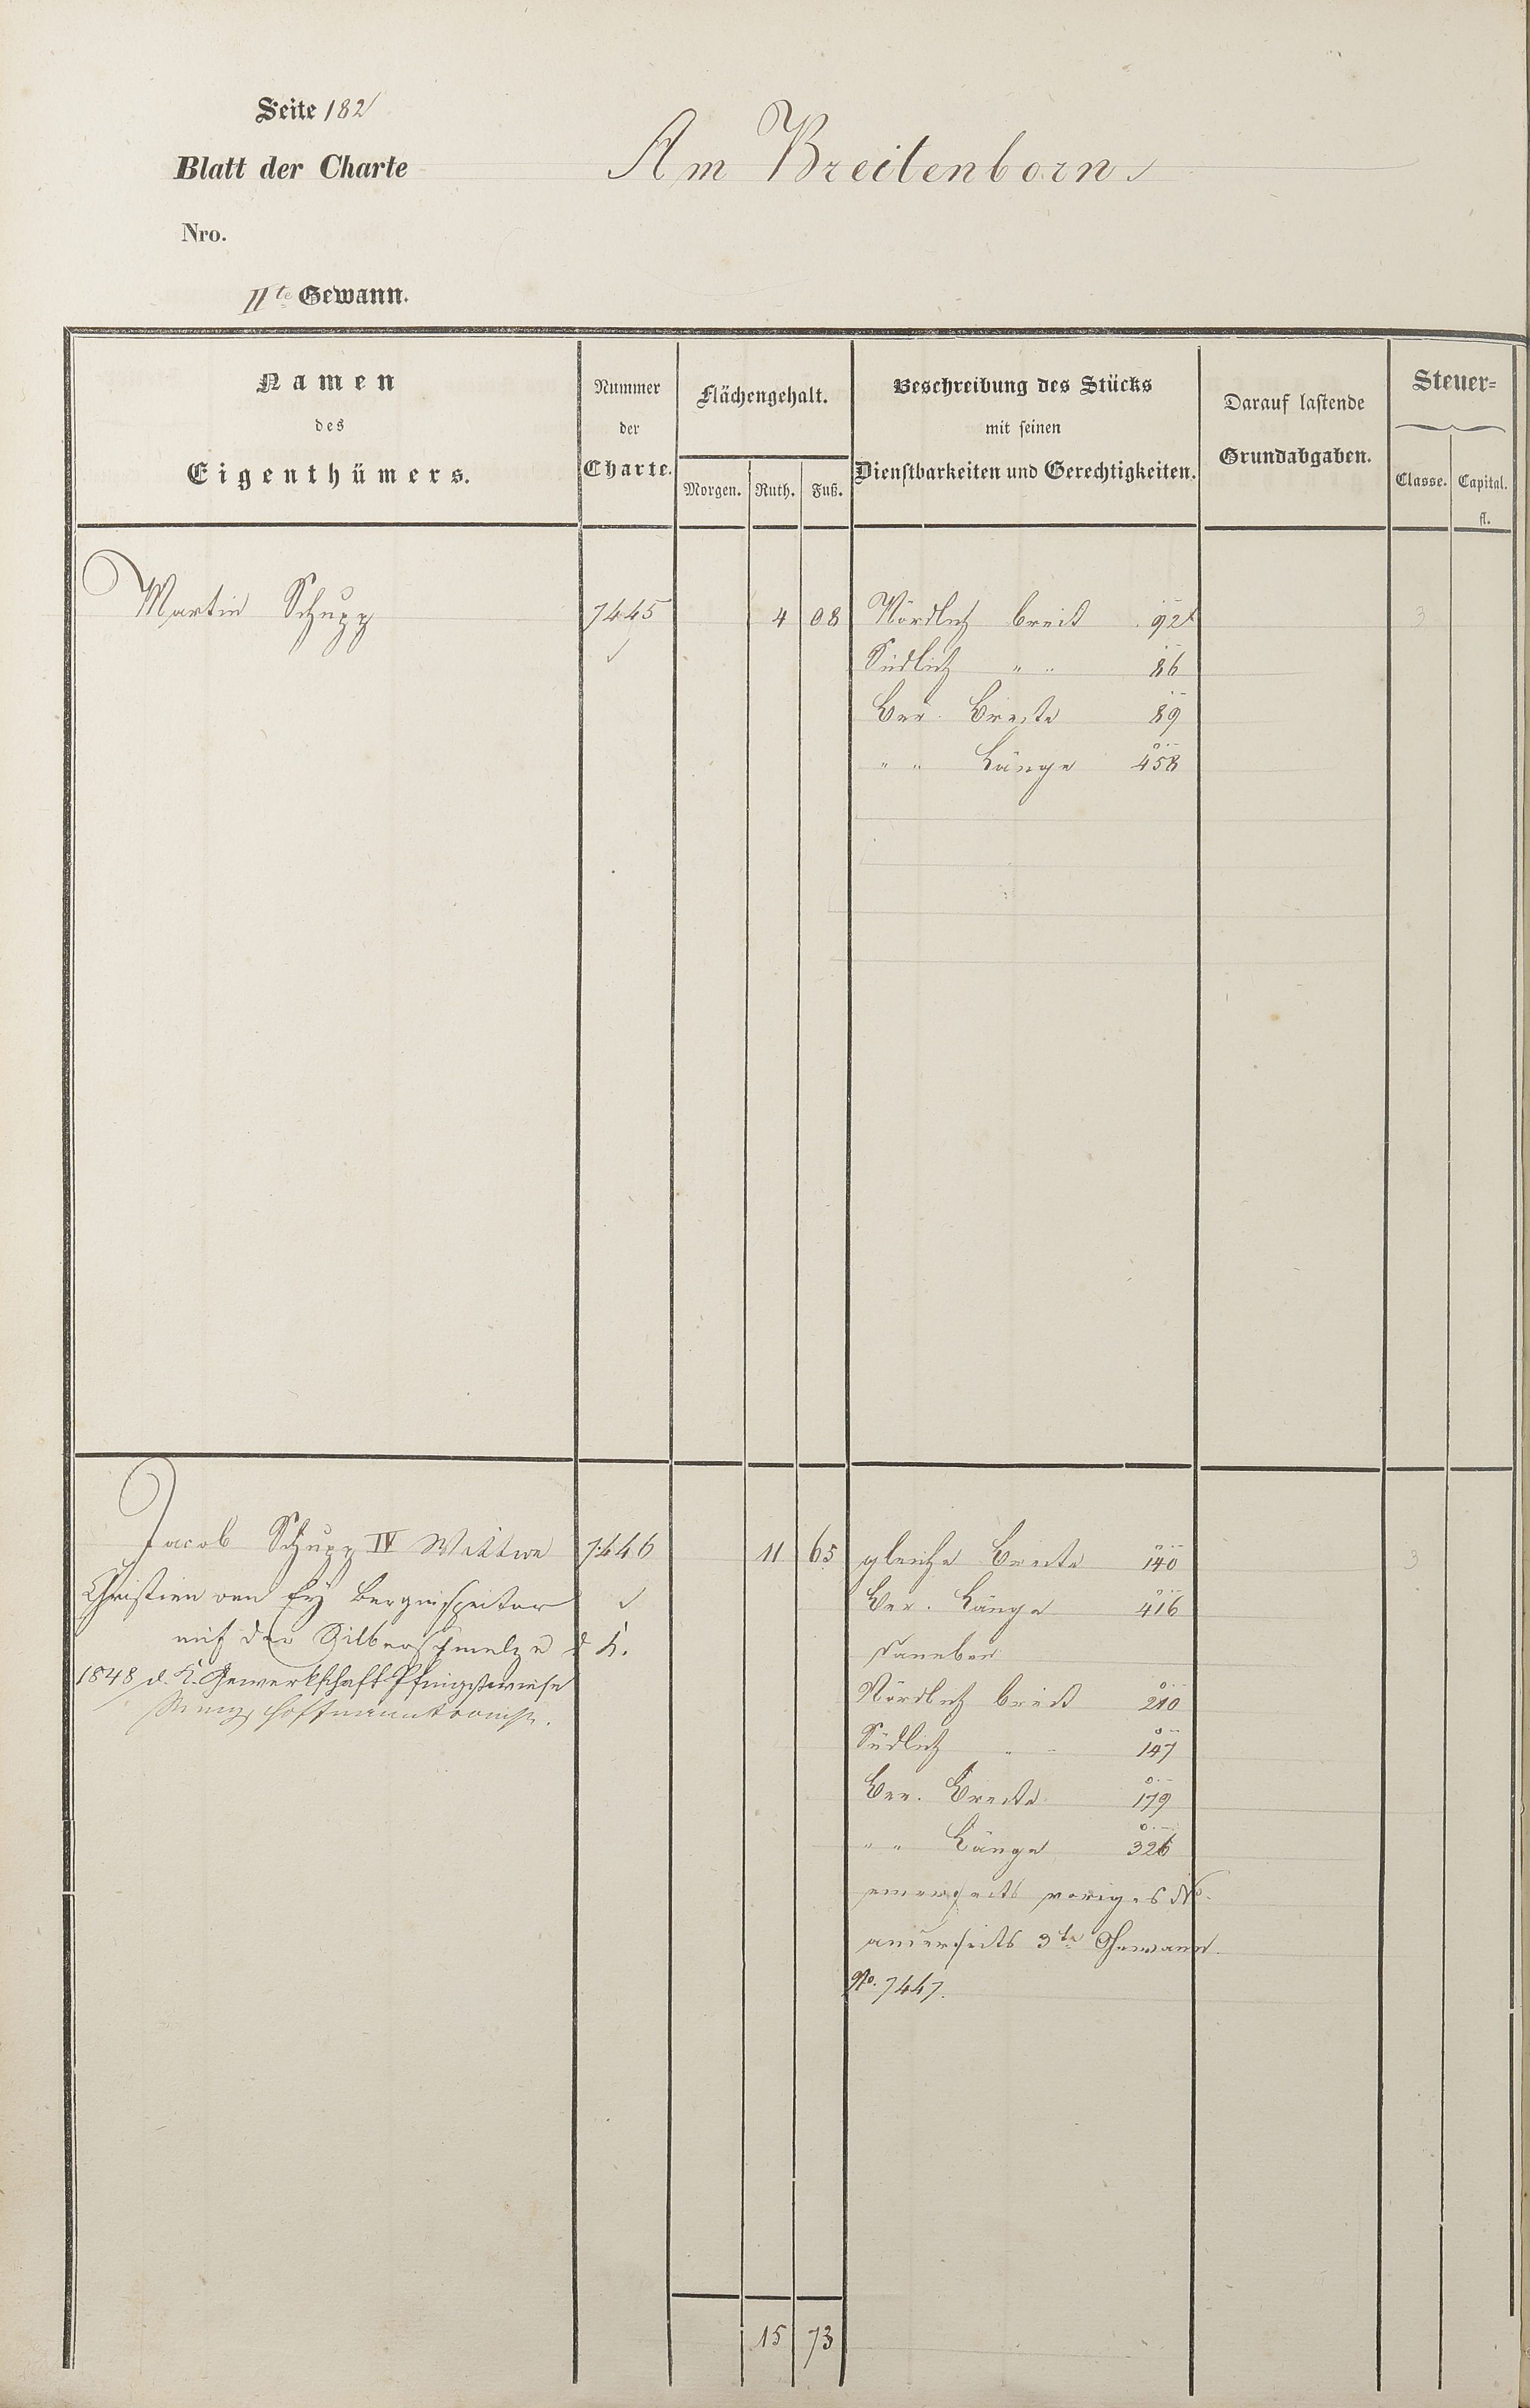 Seite 182
Blatt der Charte
Am Breitenborn
Nro.
IIte Gewann.
Namen des Eigenthümers.
Nummer der Charte.
Flächengehalt.
Morgen. Ruth. Fuß.
Beschreibung des Stücks mit seinen Dienstbarkeiten und Gerechtigkeiten.
Darauf lastende Grundabgaben.
Steuer=
Classe. Capital.
fl.
Martin Schupp 7445 4 08 Nördlich breit 92 3
Südlich " " 86
Ver. Breite 89
" " Länge 458
Jacob Schupp IV Wittwe 7446 11 65 gleiche Breite 140 3
Christian von Ey Berginspector Ver. Länge 416
auf der Silberschmelze d. H. daneben
1848 d. H. Gewerkschaft Pfingstwiese Nördlich breit 210
Südlich " " 147
Ver. Breite 179
" " Länge 326
einerseits voriges No.
anderseits 3te Gewann.
No. 7447.
15 73